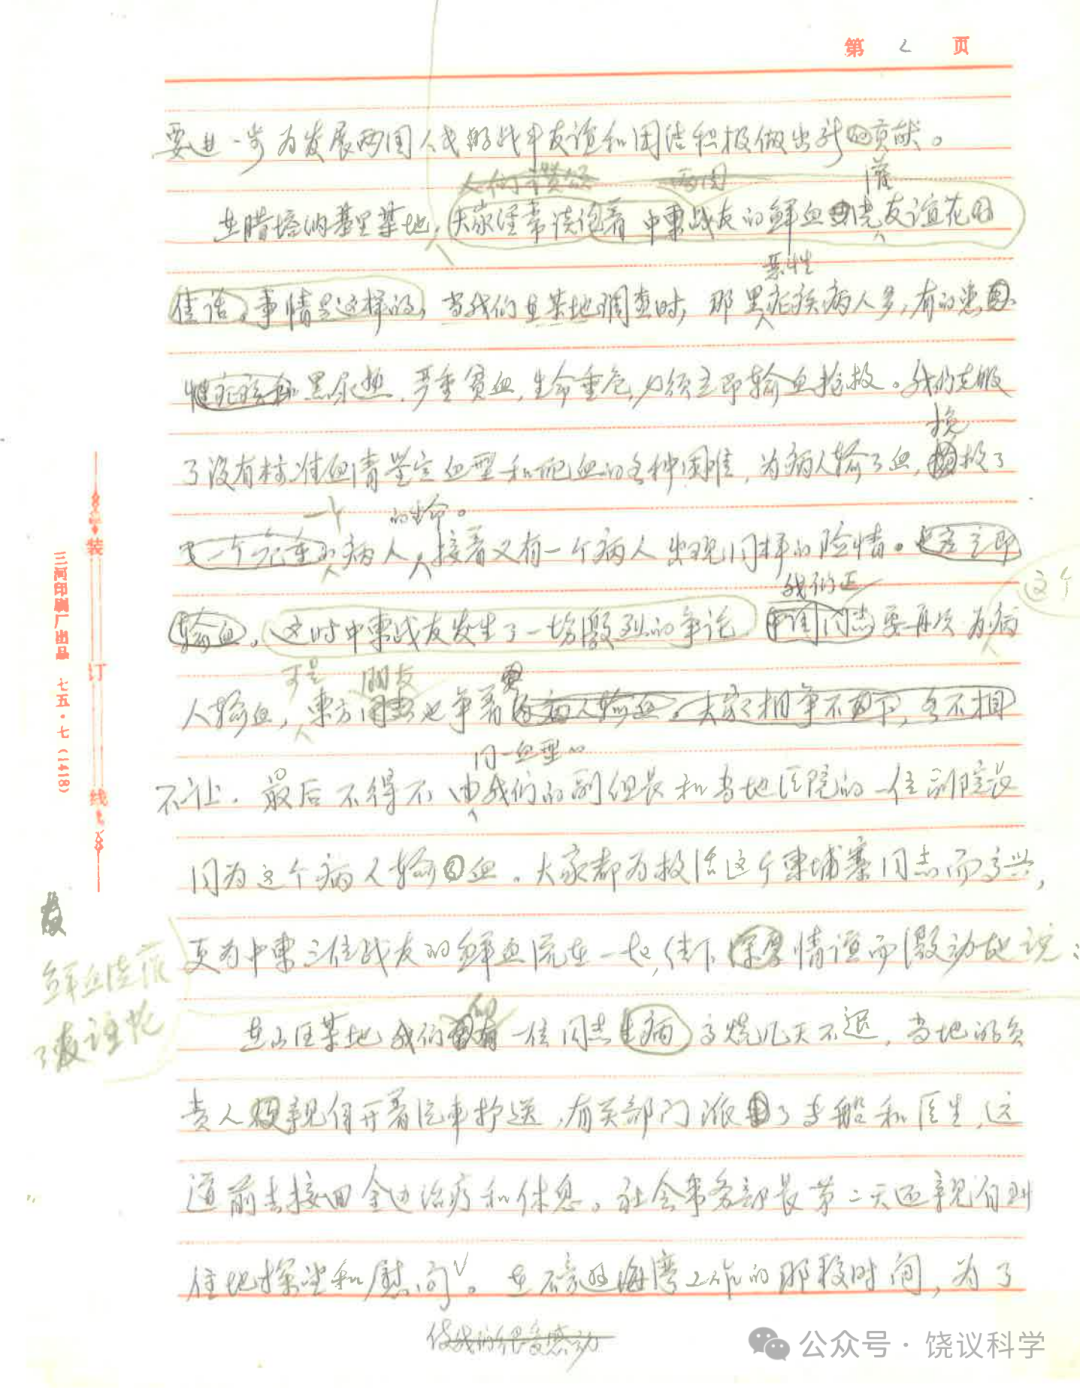 第 2 页
要进一步为发展两国人民的战斗友谊和团结积极做出新的贡献。
人们赞颂 两国 灌
在腊塔纳基里某地，大家经常谈论着中柬战友的鲜血浇友谊花的
恶性
佳话，事情是这样的，当我们在某地调查时，那里疟疾病人多，有的患
性疟疾和黑尿热，严重贫血，生命垂危，必须立即输血抢救。我们克服
挽
了没有标准血清鉴定血型和配血的各种困难，为病人输了血，救了
一个 的生命。
一个危重病人，接着又有一个病人出现同样的险情。立即
我们正 这个
输血。这时中柬战友发生了一场激烈的争论。同志要再次为病
可是 朋友
人输血，柬方同志也争着病人输血。大家相争不下，各不相
同一血型的
不让．最后不得不由我们的副组长和当地医院的一位副院长
同为这个病人输血。大家都为救活这个柬埔寨同志而高兴，
更为中柬三位战友的鲜血流在一起，结下深厚情谊而激动地说：
鲜血
友谊花
在山区某地我们有一位同志生病高烧几天不退，当地的负
责人亲自开着汽车护送，有关部门派了专船和医生，远
道前去接回金边治疗和休息。社会事务部长第二天还亲自到
住地探望和慰问。在磅逊海湾工作的那段时间，为了
使我们很受感动
装
订
线
三河印刷厂出品 七五·七(1418)
公众号·饶议科学